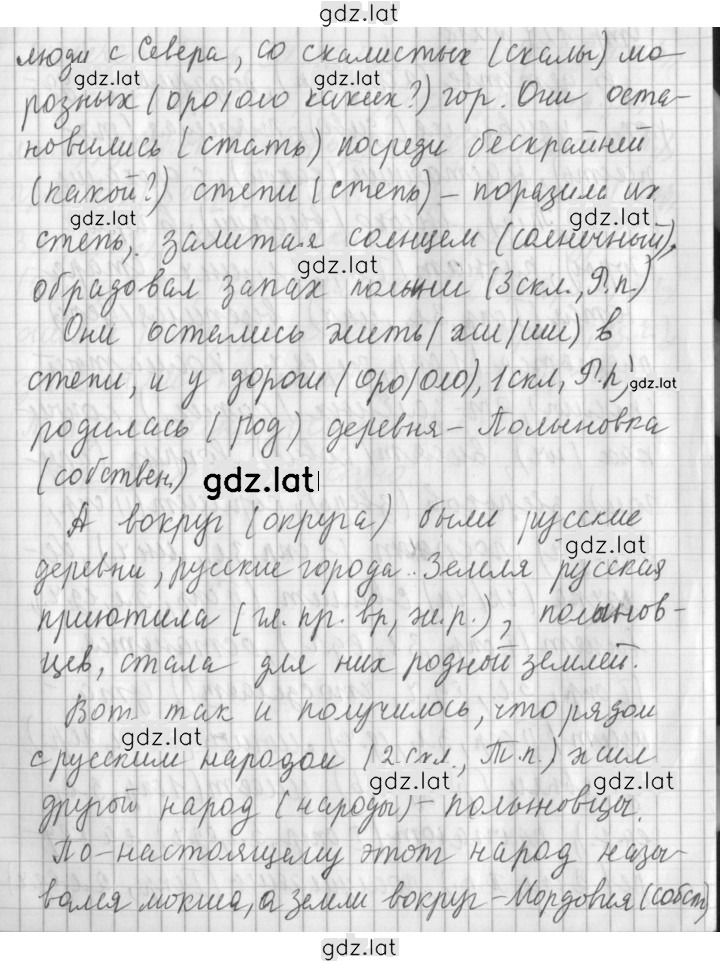 gdz.lat
люди с Севера, со скалистых (скалы) мо-
gdz.lat gdz.lat
розных (оро/оло каких?) гор. Они оста-
новились (стать) посреди бескрайней
(какой?) степи (степь) – поразила их
gdz.lat gdz.lat
степь, залитая солнцем (солнечный),
gdz.lat
обрадовал запах полыни (3 скл., Р.п.)
Они остались жить (жи/ши) в
степи, и у дороги (оро/оло), 1 скл, Р.п,
gdz.lat
родилась (род) деревня – Полыновка
(собствен.) gdz.lat
А вокруг (округа) были русские
gdz.lat
деревни, русские города. Земля русская
приютила (гл. пр. вр, ж.р.), полынов-
цев, стала для них родной землей.
Вот так и получилось, что рядом
gdz.lat
с русским народом (2 скл., Т.п.) жил
gdz.lat gdz.lat
другой народ (народы) – полыновцы.
По-настоящему этот народ назы-
вался мокша, а земли вокруг – Мордовия (собст)
gdz.lat